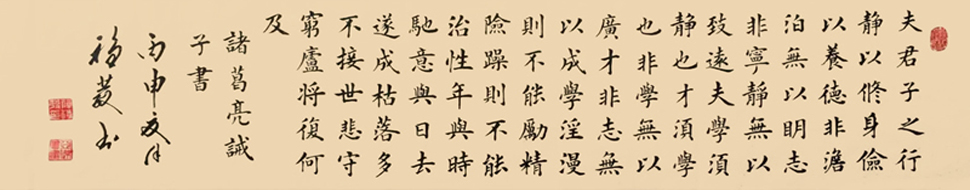 夫君子之行
靜以修身儉
以養德非澹
泊無以明志
非寧靜無以
致遠夫學須
靜也才須學
也非學無以
廣才非志無
以成學淫漫
則不能勵精
險躁則不能
治性年與時
馳意與日去
遂成枯落多
不接世悲守
窮廬將復何
及
諸葛亮誡
子書
丙申夏月
书